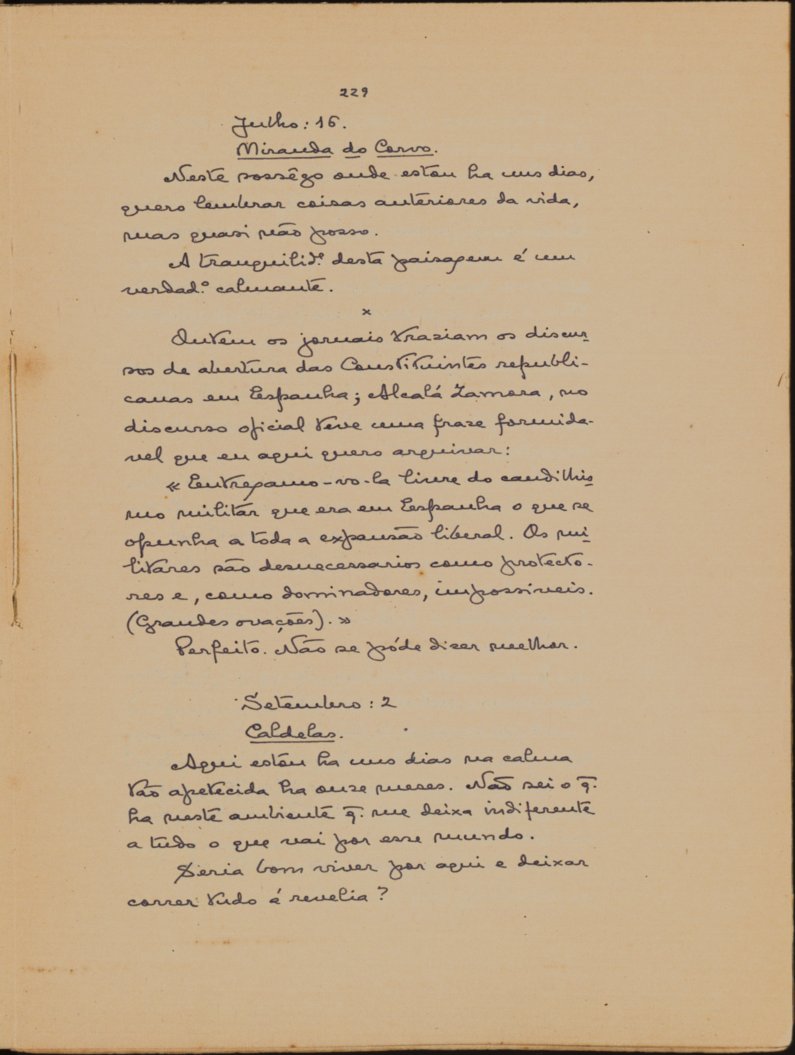 229
Julho: 16.
Miranda do Corvo.
Neste sossêgo onde estou ha uns dias,
quero lembrar coisas anteriores da vida,
mas quasi não posso.
A tranquilid.e desta paisagem é um
verdad.o calmante.
x
Ontem os jornais traziam os discur-
sos de abertura das Constituintes republi-
canas em Espanha; Alcalá Zamora, no
discurso oficial teve uma frase formida-
vel que eu aqui quero arquivar:
« Entregamo-vo-la livre do caudilhis-
mo militar que era em Espanha o que se
opunha a toda a expansão liberal. Os mi-
litares são desnecessarios como protecto-
res e, como dominadores, impossiveis.
(Grandes ovações). »
Perfeito. Não se póde dizer melhor.
Setembro: 2
Caldelas.
Aqui estou ha uns dias na calma
tão apetecida ha onze meses. Não sei o q.
ha neste ambiente q. me deixa indiferente
a tudo o que vai por esse mundo.
Seria bom viver por aqui e deixar
correr tudo á revelia?